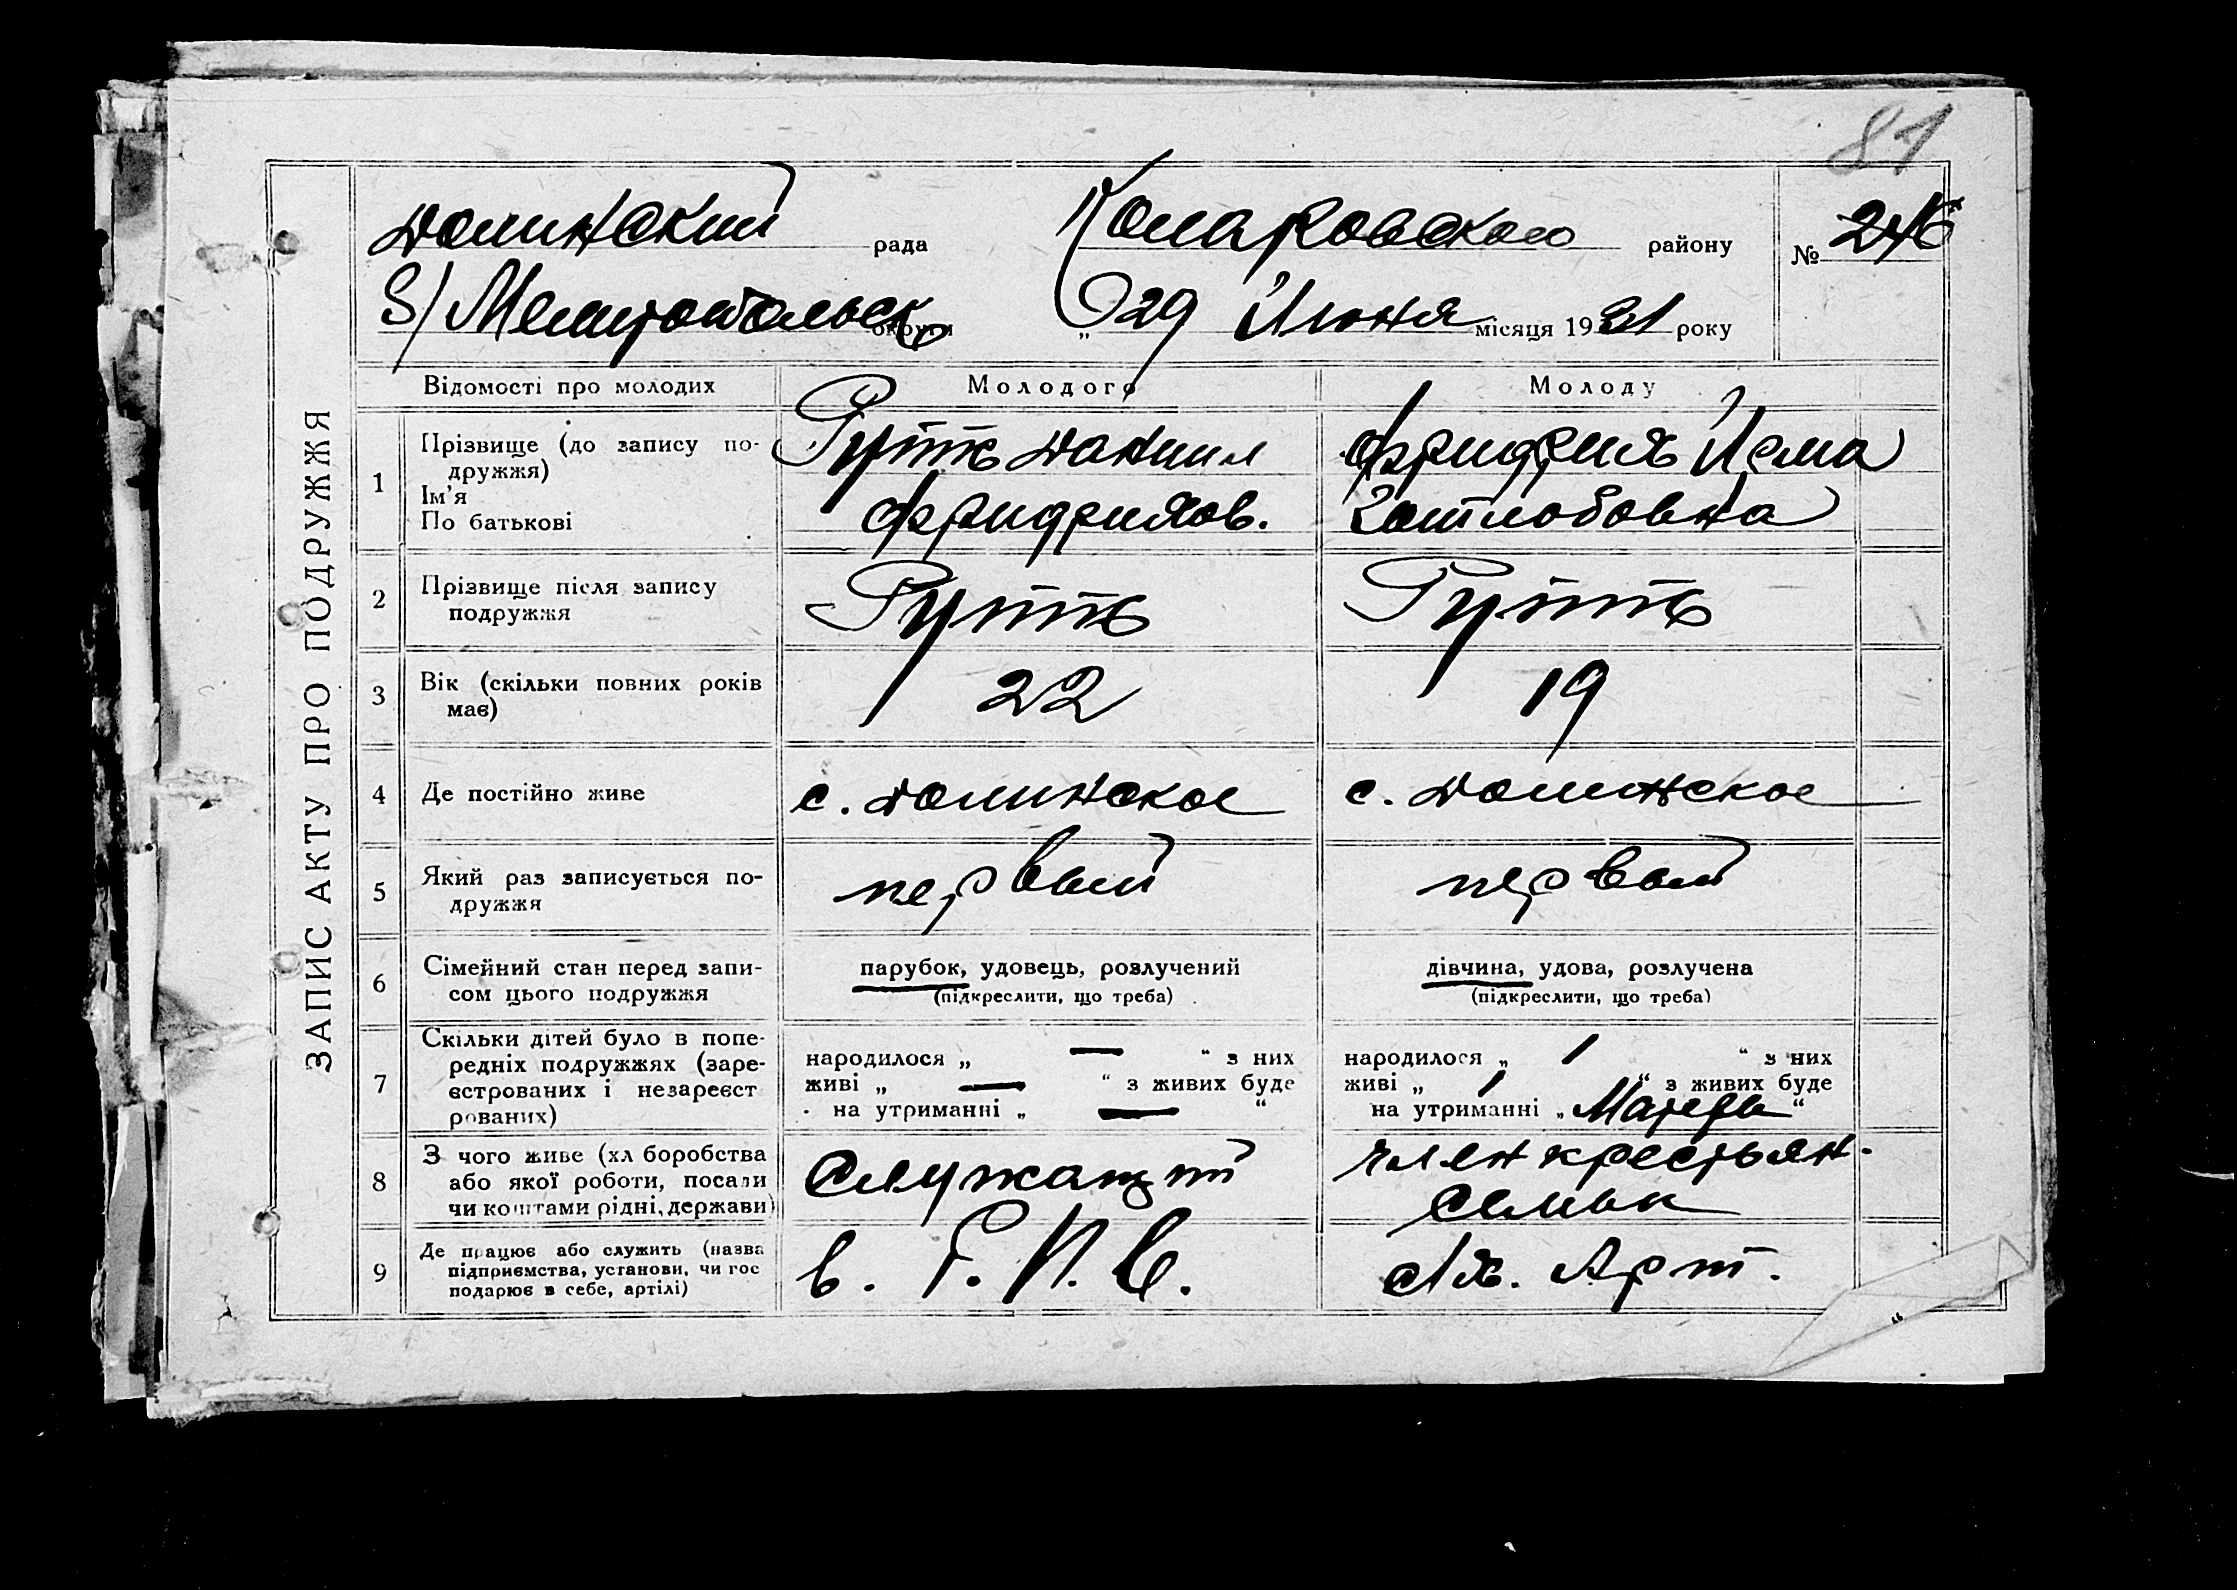 81
Долинский рада Комаровского району № 246
Мелитопольск округи „ 29 Июня місяця 1931 року
ЗАПИС АКТУ ПРО ПОДРУЖЖЯ
Відомості про молодих Молодого Молоду
1 Прізвище (до запису по-
дружжя)
Ім'я
По батькові
Рутть Даниил
Фридрихов.
Фридрих Ирма
Готлобовна
2 Прізвище після запису
подружжя
Рутть Рутть
3 Вік (скільки повних років
має)
22 19
4 Де постійно живе с. Долинское с. Долинское
5 Який раз записується по-
дружжя
первый первый
6 Сімейний стан перед запи-
сом цього подружжя
парубок, удовець, розлучений
(підкреслити, що треба)
дівчина, удова, розлучена
(підкреслити, що треба)
7 Скільки дітей було в попе-
редніх подружжях (заре-
єстрованих і незареєст
рованих)
народилося „ — “ з них
живі „ — “ з живих буде
на утриманні „ — “
народилося „ 1 “ з них
живі „ 1 “ з живих буде
на утриманні „ Матери “
8 З чого живе (хл боробства
або якої роботи, посади
чи коштами рідні, держави)
Служащий
член крестьян.
семьи
9 Де працює або служить (назва
підприємства, установи, чи гос
подарює в себе, артілі)
в.
Арт.